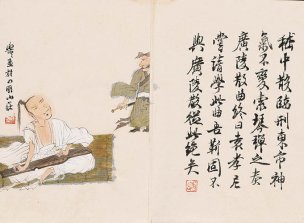 嵇中散臨刑東市神
氣不變索琴彈之奏
廣陵散曲終曰袁孝尼
嘗請學此曲吾靳固不
與廣陵散從此絕矣